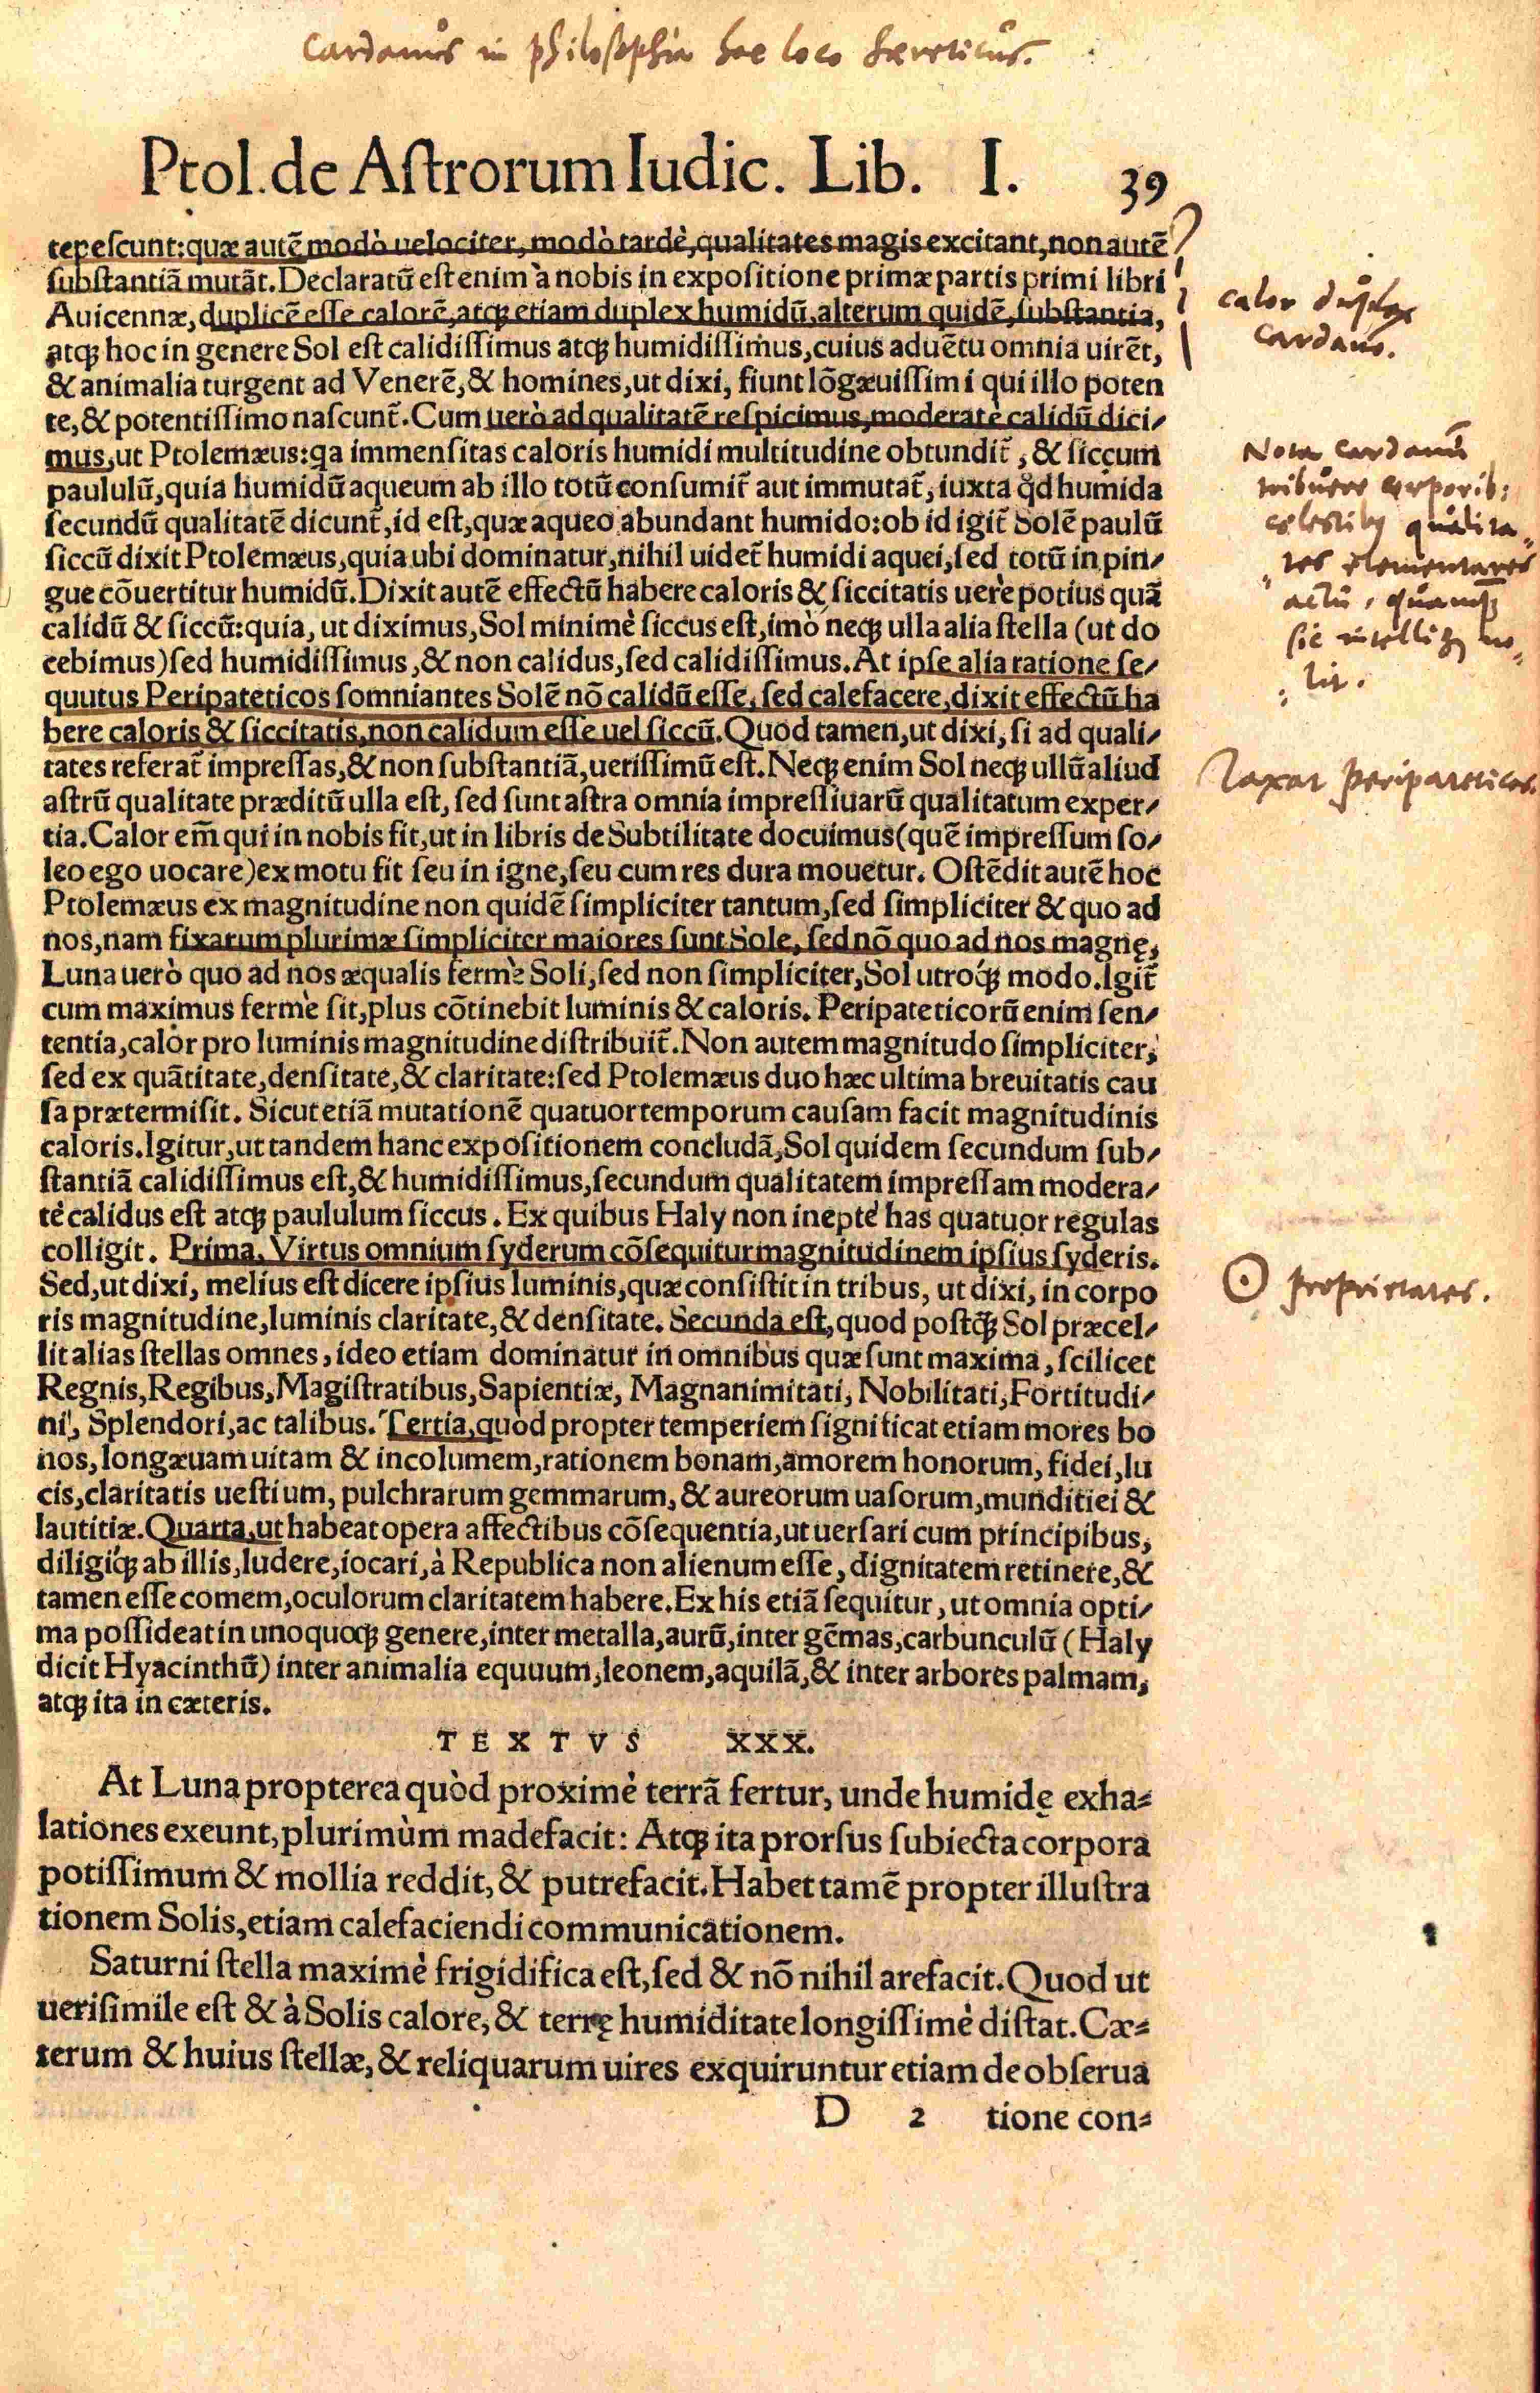 Cardanus in philosophia hoc loco hæreticus.
Ptol. de Aſtrorum Iudic. Lib. I. 39
tepeſcunt: quæ autē modò uelociter, modò tardè, qualitates magis excitant, non autē
ſubſtantiā mutāt. Declaratū eſt enim à nobis in expoſitione primæ partis primi libri
Auicennæ, duplicē eſſe calorē, atq́ꝫ etiam duplex humidū, alterum quidē, ſubſtantia,
calor duplex
Cardano.
atqꝫ hoc in genere Sol eſt calidiſſimus atqꝫ humidiſſimus, cuius aduētu omnia uirēt,
& animalia turgent ad Venerē, & homines, ut dixi, fiunt lōgæuiſſimi qui illo poten
te, & potentiſſimo naſcunt̄. Cum uerò ad qualitatē reſpicimus, moderatè calidū dici-
mus, ut Ptolemæus: qa immenſitas caloris humidi multitudine obtundit̄, & ſiccum
Nota Cardanū
tribuere corporib:
cęleſtibꝫ qualita-
tes elementares
actu, quamqꝫ
ſic intelligi no-
lit.
paululū, quia humidū aqueum ab illo totū conſumit̄ aut immutat̄, iuxta qd̄ humida
ſecundū qualitatē dicunt̄, id eſt, quæ aqueo abundant humido: ob id igit̄ Solē paulū
ſiccū dixit Ptolemæus, quia ubi dominatur, nihil uidet̄ humidi aquei, ſed totū in pin-
gue cōuertitur humidū. Dixit autē effectū habere caloris & ſiccitatis uerè potius quā
calidū & ſiccū: quia, ut diximus, Sol minimè ſiccus eſt, imò neqꝫ ulla alia ſtella (ut do
cebimus) ſed humidiſſimus, & non calidus, ſed calidiſſimus. At ipſe alia ratione ſe-
quutus Peripateticos ſomniantes Solē nō calidū eſſe, ſed calefacere, dixit effectū ha
bere caloris & ſiccitatis, non calidum eſſe uel ſiccū. Quod tamen, ut dixi, ſi ad quali-
tates referat̄ impreſſas, & non ſubſtantiā, ueriſſimū eſt. Neqꝫ enim Sol neqꝫ ullū aliud
Taxat Peripateticos.
aſtrū qualitate præditū ulla eſt, ſed ſunt aſtra omnia impreſſiuarū qualitatum exper-
tia. Calor em̄ qui in nobis fit, ut in libris de Subtilitate docuimus (quē impreſſum ſo-
leo ego uocare) ex motu fit ſeu in igne, ſeu cum res dura mouetur. Oſtēdit autē hoc
Ptolemæus ex magnitudine non quidē ſimpliciter tantum, ſed ſimpliciter & quo ad
nos, nam fixarum plurimæ ſimpliciter maiores ſunt Sole, ſed nō quo ad nos magnę,
Luna uerò quo ad nos æqualis fermè Soli, ſed non ſimpliciter, Sol utroq́ꝫ modo. Igit̄
cum maximus fermè ſit, plus cōtinebit luminis & caloris. Peripateticorū enim ſen-
tentia, calor pro luminis magnitudine diſtribuit̄. Non autem magnitudo ſimpliciter,
ſed ex quātitate, denſitate, & claritate: ſed Ptolemæus duo hæc ultima breuitatis cau
ſa prætermiſit. Sicut etiā mutationē quatuor temporum cauſam facit magnitudinis
caloris. Igitur, ut tandem hanc expoſitionem concludā, Sol quidem ſecundum ſub-
ſtantiā calidiſſimus eſt, & humidiſſimus, ſecundum qualitatem impreſſam modera-
tè calidus eſt atqꝫ paululum ſiccus. Ex quibus Haly non ineptè has quatuor regulas
colligit. Prima, Virtus omnium ſyderum cōſequitur magnitudinem ipſius ſyderis.
Sed, ut dixi, melius eſt dicere ipſius luminis, quæ conſiſtit in tribus, ut dixi, in corpo
☉ proprietates.
ris magnitudine, luminis claritate, & denſitate. Secunda eſt, quod poſtq̄ꝫ Sol præcel-
lit alias ſtellas omnes, ideo etiam dominatur in omnibus quæ ſunt maxima, ſcilicet
Regnis, Regibus, Magiſtratibus, Sapientiæ, Magnanimitati, Nobilitati, Fortitudi-
ni, Splendori, ac talibus. Tertia, quòd propter temperiem ſignificat etiam mores bo
nos, longæuam uitam & incolumem, rationem bonam, amorem honorum, fidei, lu
cis, claritatis ueſtium, pulchrarum gemmarum, & aureorum uaſorum, munditiei &
lautitiæ. Quarta, ut habeat opera affectibus cōſequentia, ut uerſari cum principibus,
diligiq́ꝫ ab illis, ludere, iocari, à Republica non alienum eſſe, dignitatem retinere, &
tamen eſſe comem, oculorum claritatem habere. Ex his etiā ſequitur, ut omnia opti-
ma poſſideat in unoquoqꝫ genere, inter metalla, aurū, inter gēmas, carbunculū (Haly
dicit Hyacinthū) inter animalia equuum, leonem, aquilā, & inter arbores palmam,
atqꝫ ita in cæteris.
TEXTVS XXX.
At Luna propterea quòd proximè terrā fertur, unde humidę exha-
lationes exeunt, plurimùm madefacit: Atqꝫ ita prorſus ſubiecta corpora
potiſſimum & mollia reddit, & putrefacit. Habet tamē propter illuſtra
tionem Solis, etiam calefaciendi communicationem.
Saturni ſtella maximè frigidifica eſt, ſed & nō nihil arefacit. Quod ut
ueriſimile eſt & à Solis calore, & terrę humiditate longiſſimè diſtat. Cæ-
terum & huius ſtellæ, & reliquarum uires exquiruntur etiam de obſerua
D 2 tione con-